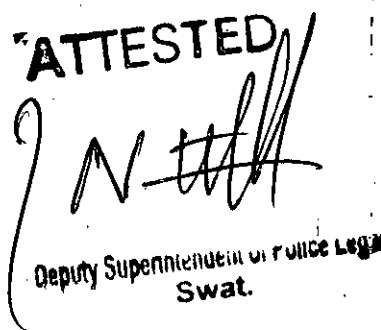 ATTESTED
Deputy Superintendent of Police Legal
Swat.